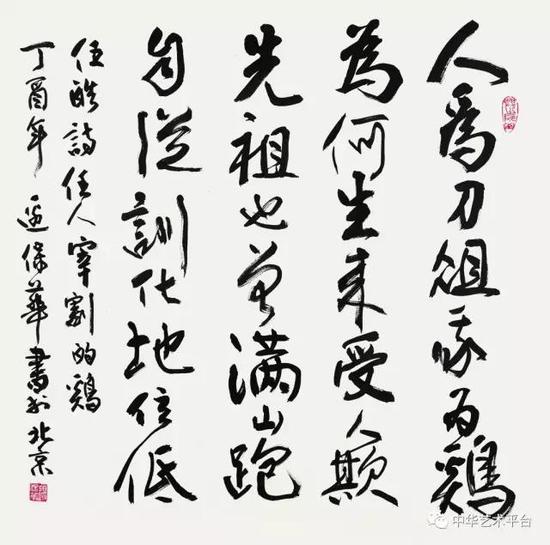 人為刀俎我为鷄
為何生来受人欺
先祖也曾满山跑
自從訓化地位低
伍皓詩任人宰割的鷄
丁酉年 保華書於北京
中华艺术平台